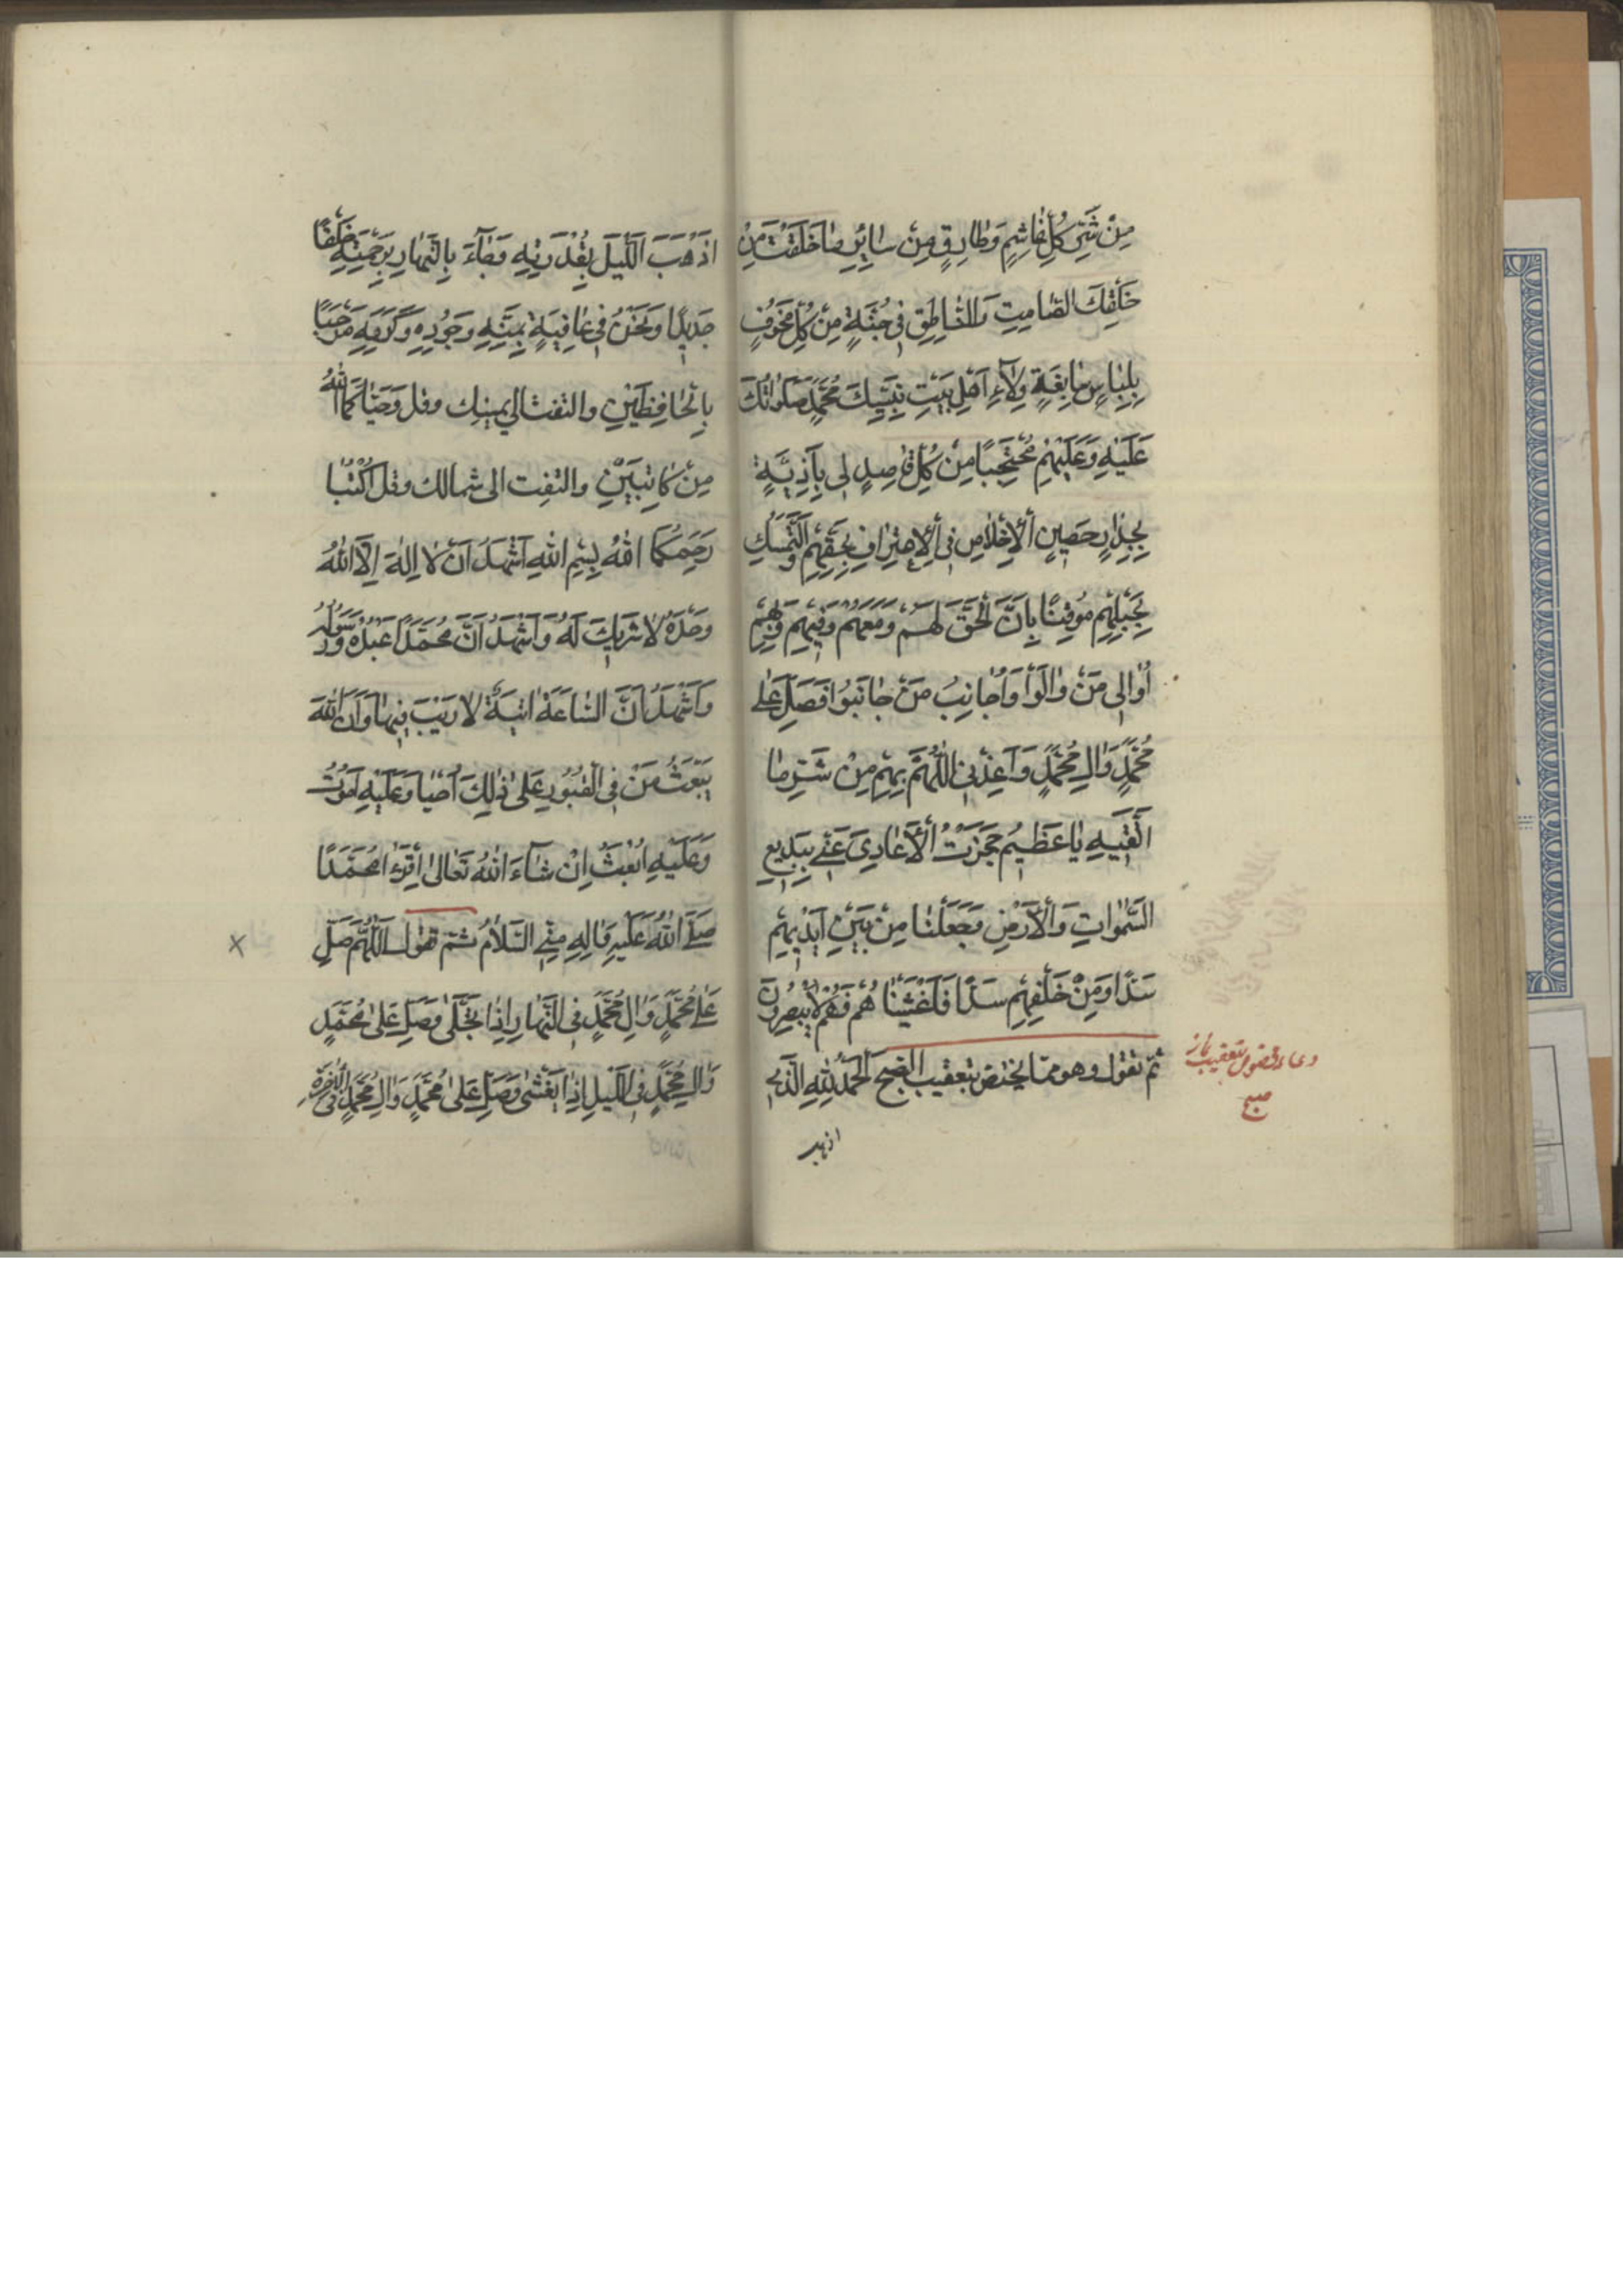 مِنْ شَرِّ كُلِّ غَاشِمٍ وَطَارِقٍ مِنْ سَائِرِ مَا خَلَقْتَ مِنْ
خَلْقِكَ الصَّامِتِ وَالنَّاطِقِ فِي جُنَّةٍ مِنْ كُلِّ مَخُوفٍ
بِلِبَاسٍ سَابِغَةٍ وِلَاءِ اَهْلِ بَيْتِ نَبِيِّكَ مُحَمَّدٍ صَلَوَاتُكَ
عَلَيْهِ وَعَلَيْهِمْ مُحْتَجِبًا مِنْ كُلِّ قَاصِدٍ لِي بِاَذِيَّةٍ
بِجِدَارٍ حَصِينٍ الْاِخْلَاصِ فِي الْاِعْتِرَافِ بِحَقِّهِمْ وَالتَّمَسُّكِ
بِحَبْلِهِمْ مُوقِنًا بِاَنَّ الْحَقَّ لَهُمْ وَمَعَهُمْ وَفِيهِمْ وَبِهِمْ
اُوَالِي مَنْ وَالَوْا وَاُجَانِبُ مَنْ جَانَبُوا فَصَلِّ عَلَى
مُحَمَّدٍ وَالِ مُحَمَّدٍ وَاَعِذْنِي اللّٰهُمَّ بِهِمْ مِنْ شَرِّ مَا
اَتَّقِيهِ يَا عَظِيمُ حَجَزْتُ الْاَعَادِيَ عَنِّي بِبَدِيعِ
السَّمٰوَاتِ وَالْاَرْضِ وَجَعَلْنَا مِنْ بَيْنِ اَيْدِيهِمْ
سَدًّا وَمِنْ خَلْفِهِمْ سَدًّا فَاَغْشَيْنَا هُمْ فَهُمْ لَا يُبْصِرُونَ
ثم تقول وهو مما يختص بتعقيب الصبح اَلْحَمْدُ لِلّٰهِ الَّذِي
دعاء مخصوص بتعقيب نماز
صبح
اذهب
اَذْهَبَ اللَّيْلَ بِقُدْرَتِهِ وَجَاءَ بِالنَّهَارِ بِرَحْمَتِهِ خَلْقًا
جَدِيدًا وَنَحْنُ فِي عَافِيَةٍ بِمَنِّهِ وَجُودِهِ وَكَرَمِهِ مَرْحَبًا
بِالْحَافِظَيْنِ والتفت الى يمينك وقل وَحَيَّاكُمَا اللّٰهُ
مِنْ كَاتِبَيْنِ والتفت الى شمالك وقل اُكْتُبَا
رَحِمَكُمَا اللّٰهُ بِسْمِ اللّٰهِ اَشْهَدُ اَنْ لَا اِلٰهَ اِلَّا اللّٰهُ
وَحْدَهُ لَا شَرِيكَ لَهُ وَاَشْهَدُ اَنَّ مُحَمَّدًا عَبْدُهُ وَرَسُولُهُ
وَاَشْهَدُ اَنَّ السَّاعَةَ اٰتِيَةٌ لَا رَيْبَ فِيهَا وَاَنَّ اللّٰهَ
يَبْعَثُ مَنْ فِي الْقُبُورِ عَلَى ذٰلِكَ اَحْيَا وَعَلَيْهِ اَمُوتُ
وَعَلَيْهِ اُبْعَثُ اِنْ شَاءَ اللّٰهُ تَعَالَى اَقْرِءَا مُحَمَّدًا
صَلَّى اللّٰهُ عَلَيْهِ وَاٰلِهِ مِنِّي السَّلَامُ ثُمَّ تقول اَللّٰهُمَّ صَلِّ
عَلَى مُحَمَّدٍ وَالِ مُحَمَّدٍ فِي النَّهَارِ اِذَا تَجَلَّى وَصَلِّ عَلَى مُحَمَّدٍ
وَالِ مُحَمَّدٍ فِي اللَّيْلِ اِذَا يَغْشَى وَصَلِّ عَلَى مُحَمَّدٍ وَالِ مُحَمَّدٍ فِي الْاٰخِرَةِ